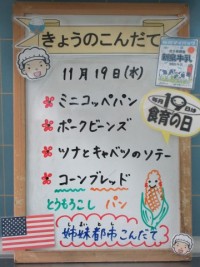 きょうのこんだて
11月19日(水)
ミニコッペパン
ポークビーンズ
ツナとキャベツのソテー
コーンブレッド
とうもろこし パン
姉妹都市こんだて
毎月19日は
食育の日